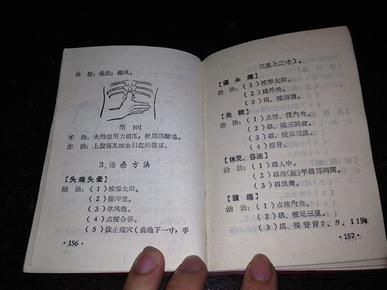 体 位：坐位；卧位。
图 101
手 法：大拇指用力掐压，使局部酸痛。
主 治：上腹痛及蛔虫引起的腹痛。
3.治疗方法
【头痛头晕】
治 法：（1）按摩太阳。
（2）推印堂。
（3）拿风池。
（4）点按合谷。
（5）拨止痛穴（高池下一寸，手
·156·
三里上二寸）。
【偏头痛】
治 法：（1）按摩太阳。
（2）掐外关。
（3）掐、揉四渎。
【失眠】
治 法：（1）点按、揉内关。
（2）掐、揉三阴交。
（3）掐、揉足三里。
（4）捏脊。
【休克、昏迷】
治 法：（1）掐人中。
（3）掐涌泉。
【腹痛】
治 法：（1）点按内关。
（2）掐、揉足三里。
（3）掐、按脊背7、9、11胸
157·